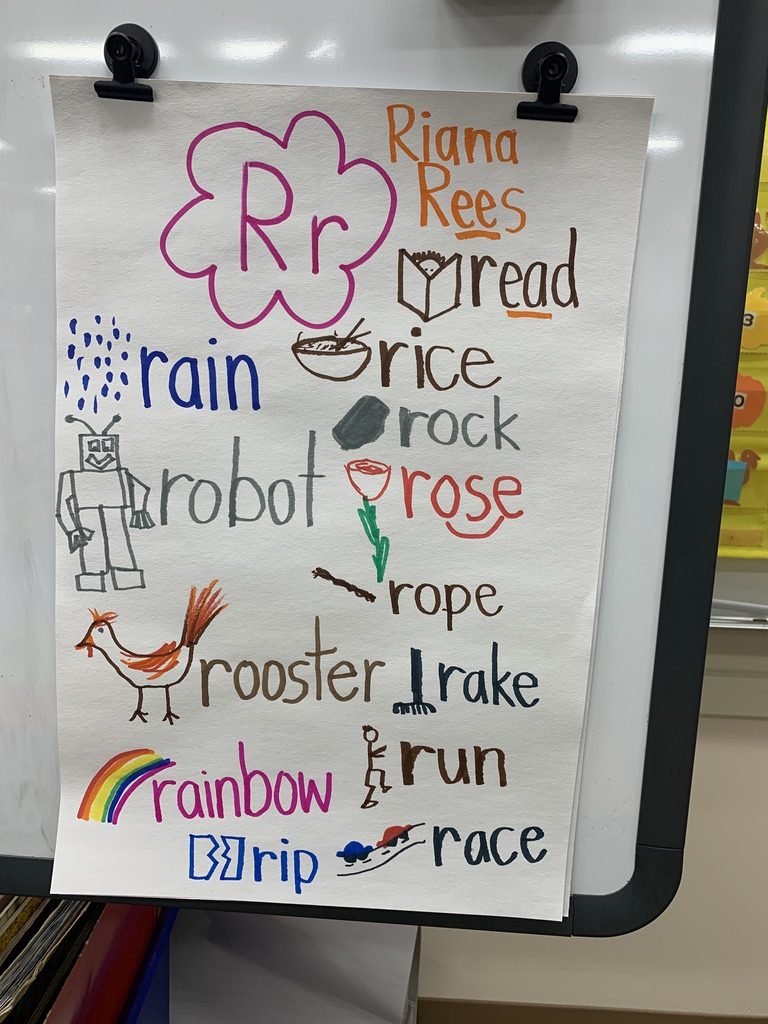 Rr
Riana
Rees
read
rain
rice
rock
robot
rose
rope
rooster
rake
rainbow
run
rip
race
3
0